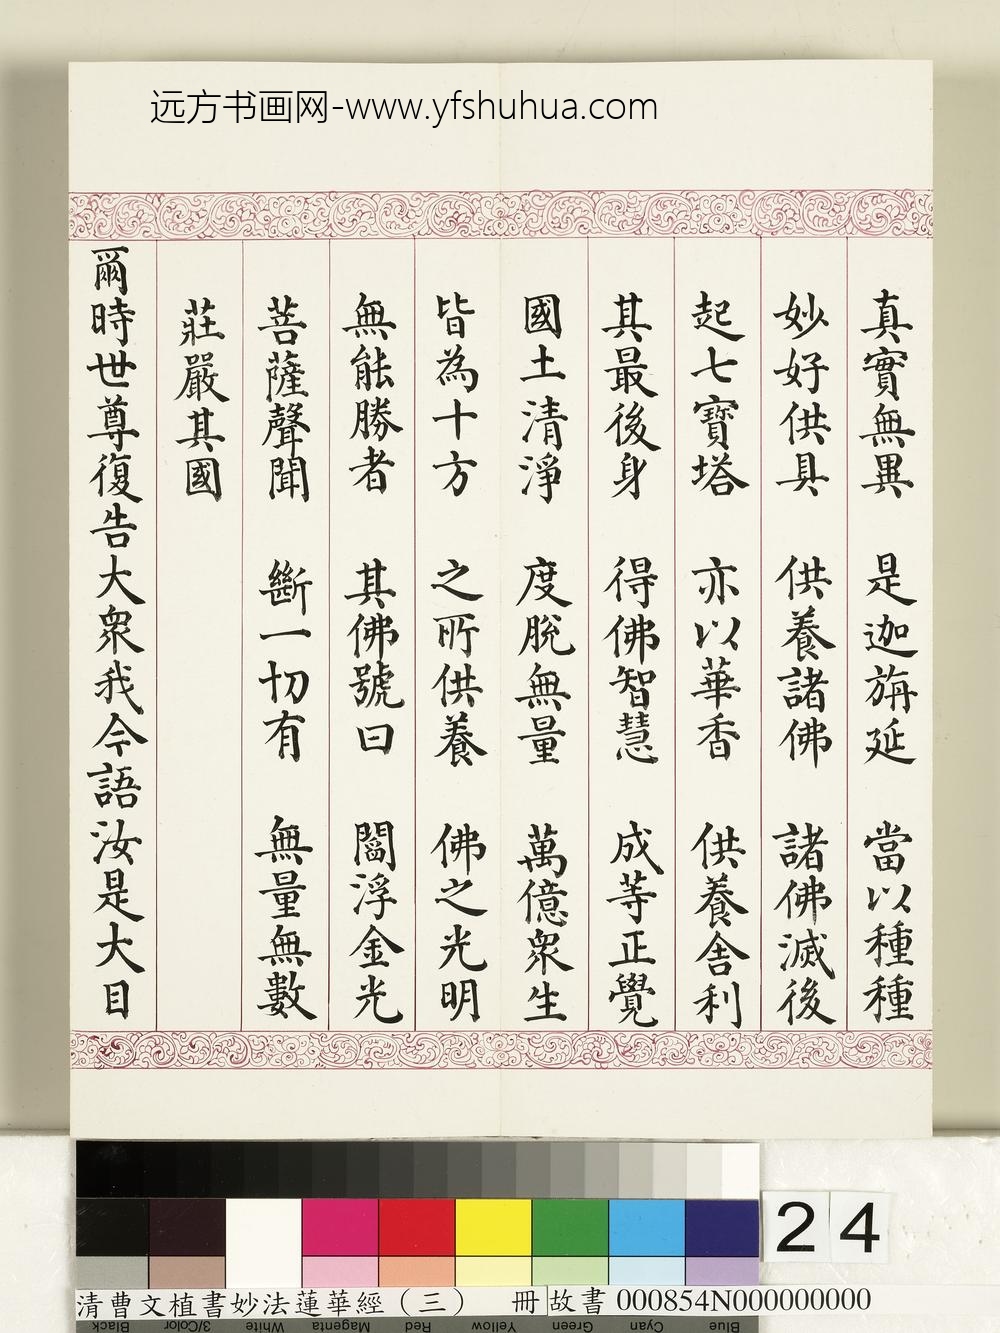 远方书画网-www.yfshuhua.com
真實無異 是迦旃延 當以種種
妙好供具 供養諸佛 諸佛滅後
起七寶塔 亦以華香 供養舍利
其最後身 得佛智慧 成等正覺
國土清淨 度脫無量 萬億眾生
皆為十方 之所供養 佛之光明
無能勝者 其佛號曰 閻浮金光
菩薩聲聞 斷一切有 無量無數
莊嚴其國
爾時世尊復告大眾我今語汝是大目
24
清曹文植書妙法蓮華經（三） 冊 故書 000854N000000000
Black 3/Color White Magenta Red Yellow Green Cyan Blue